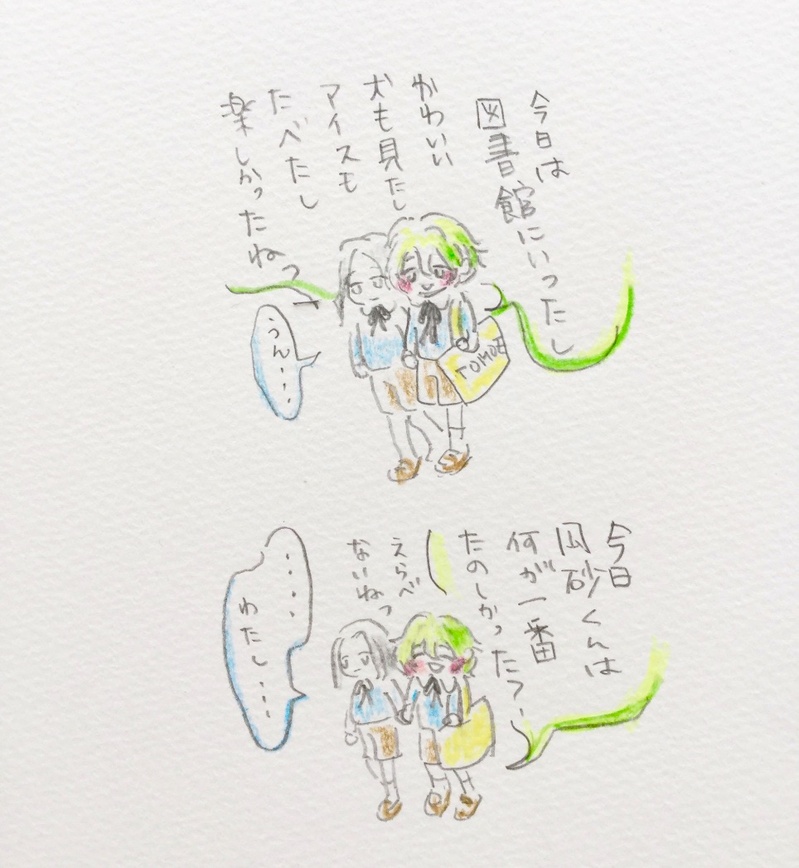 今日は
図書館にいったし
かわいい
犬も見たし
アイスも
たべたし
楽しかったねっ
うん・・・
TOMOE
今日
瓜砂くんは
何が一番
たのしかったつ
えらべ
ないねっ
・・・・
わたし・・・